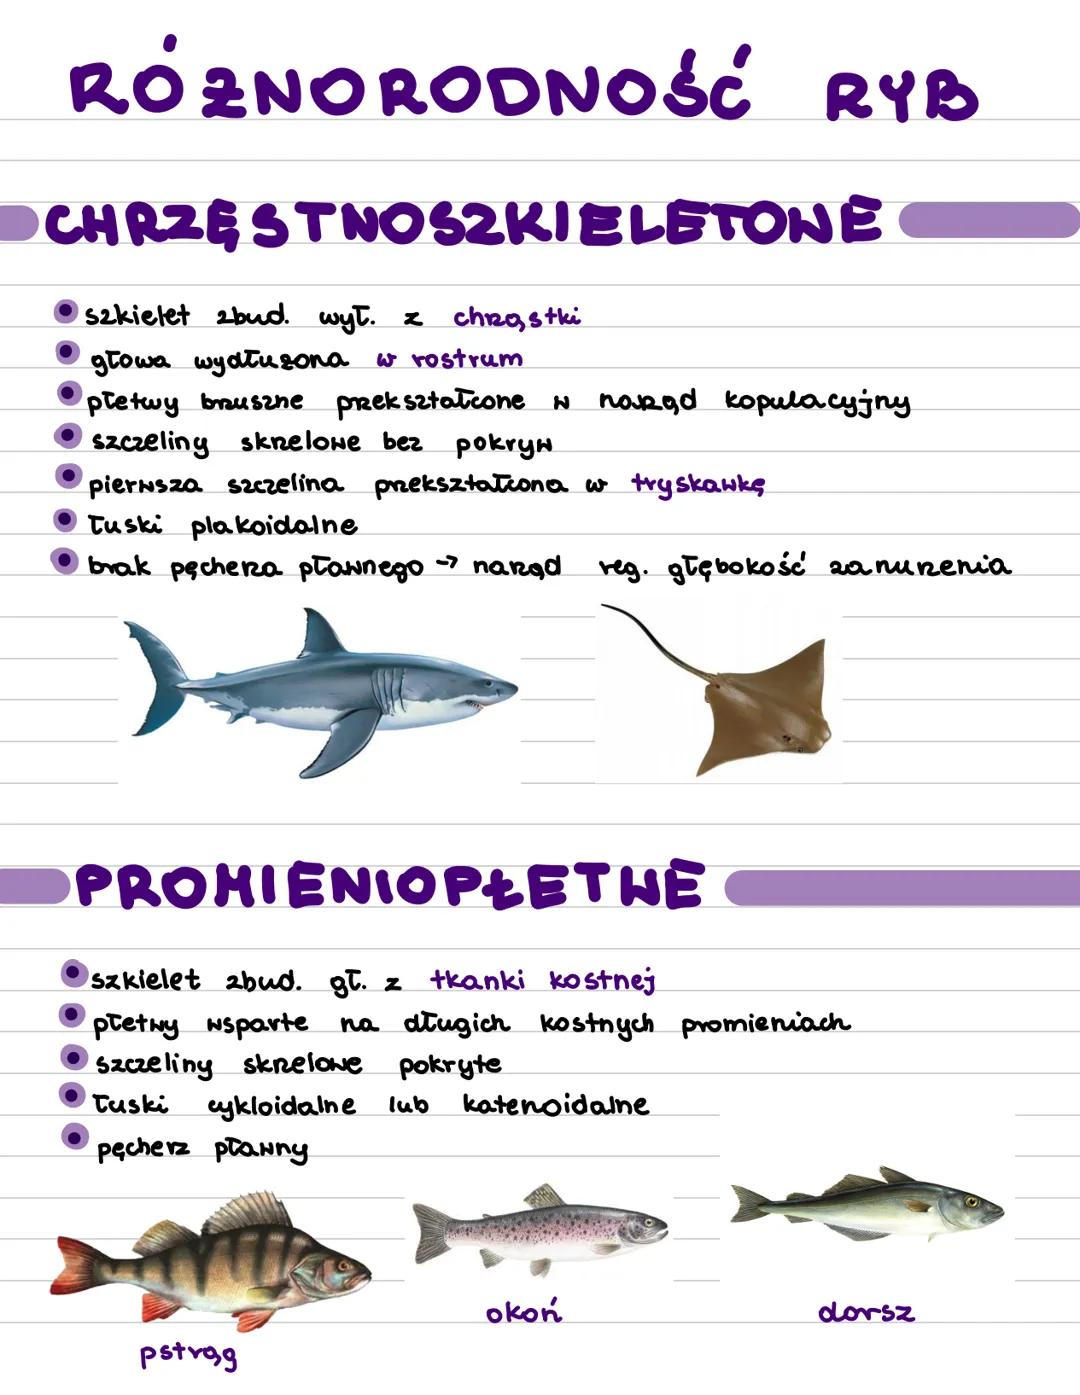 RÓŻNORODNOŚĆ RYB
CHRZĘSTNOSZKIELETOWE
szkielet zbud. wył. z chrząstki
głowa wydłużona w rostrum
płetwy bruszne przekształcone w narząd kopulacyjny
szczeliny skrzelowe bez pokryw
pierwsza szczelina przekształcona w tryskawkę
łuski plakoidalne
brak pęcherza pławnego → narząd reg. głębokość zanurzenia
PROMIENIOPŁETWE
szkielet zbud. gł. z tkanki kostnej
płetwy wsparte na długich kostnych promieniach
szczeliny skrzelowe pokryte
łuski cykloidalne lub katenoidalne
pęcherz pławny
okoń
dorsz
pstrąg